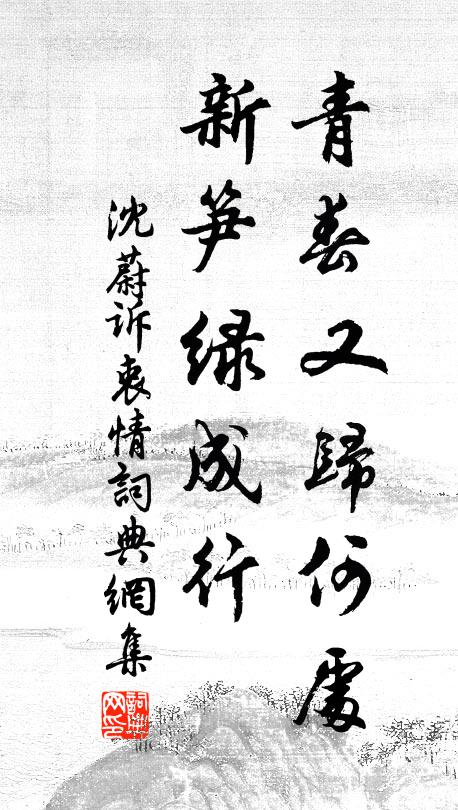 青春又歸何處
新笋綠成行
沈蔚訴衷情詞典網集